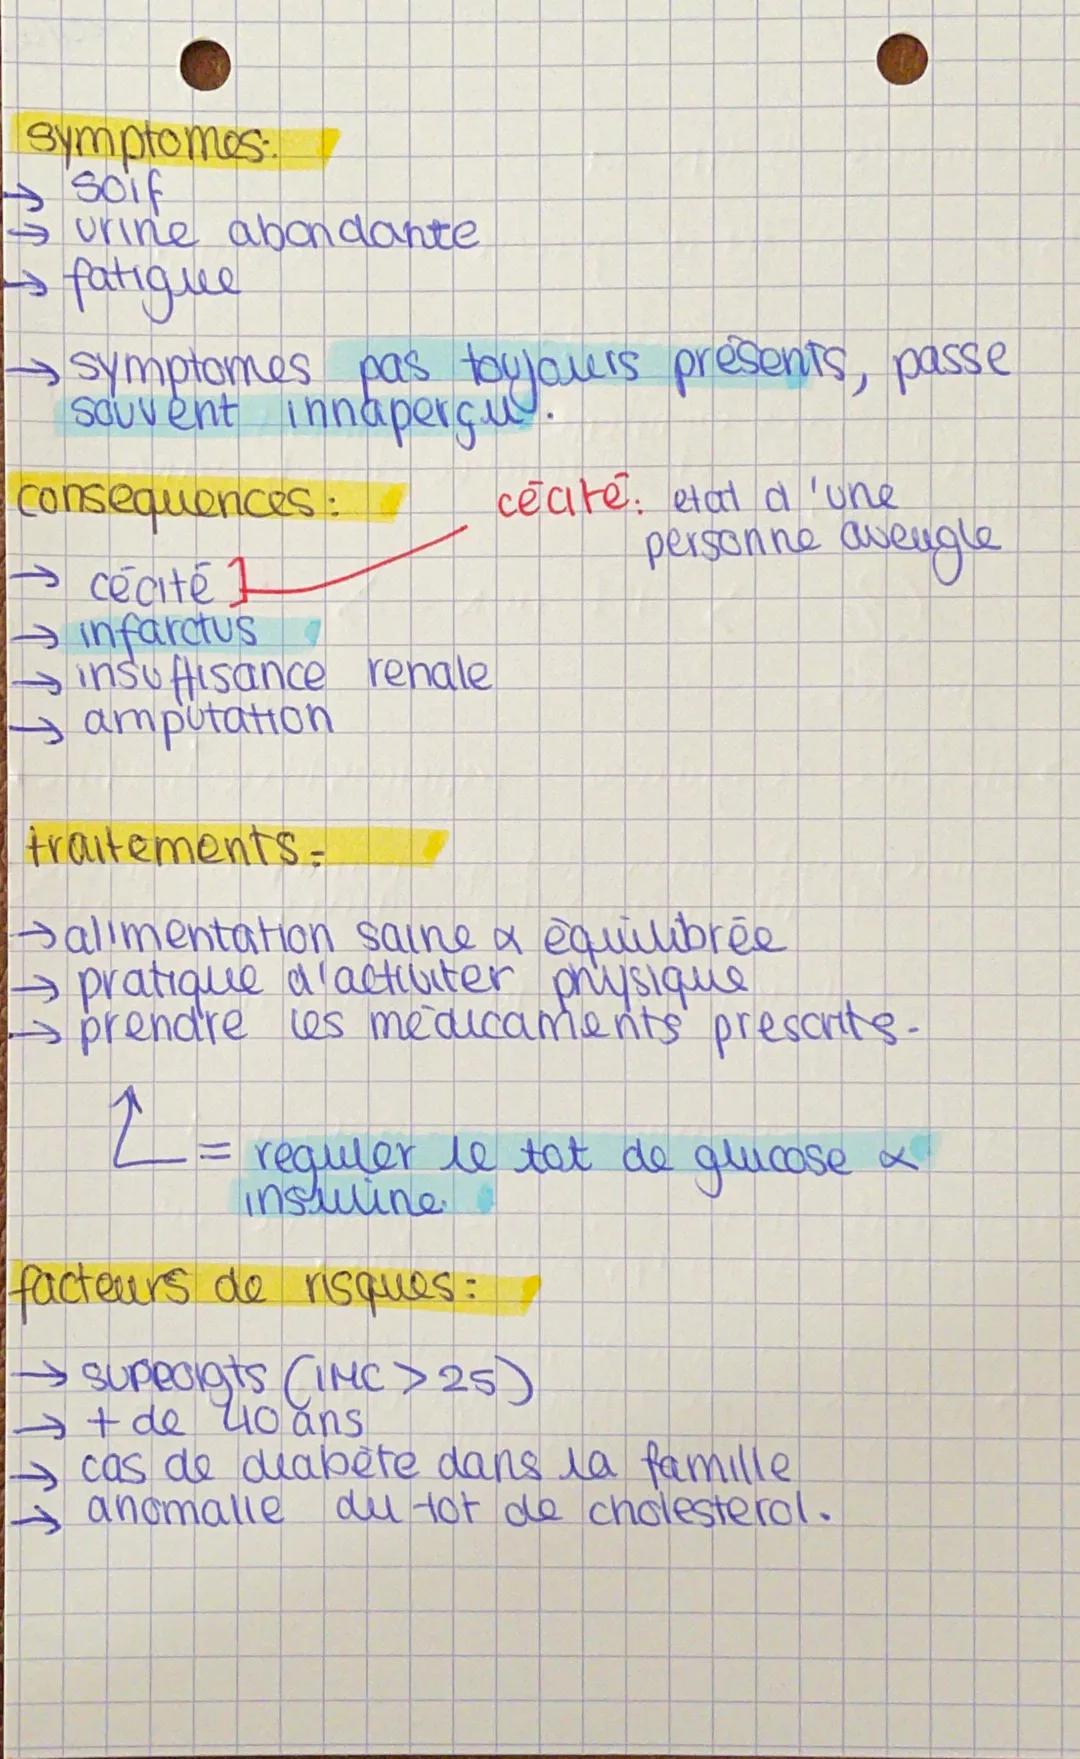 symptomes:
→ soif
→ urine abondante
→ fatigue
→ symptomes pas toujours présents, passe
souvent innaperçu.
consequences:
cécité: etat d'une
personne aveugle
→ cécité
→ infarctus
→ insuffisance renale
→ amputation
traitements:
→ alimentation saine & équilibrée
→ pratique d'activiter physique
→ prendre les médicaments prescrits.
= reguler le tot de glucose &
insuline.
facteurs de risques:
→ (IMC > 25)
→ + de 40 ans
→ cas de diabète dans la famille
→ anomalie du tot de cholesterol.